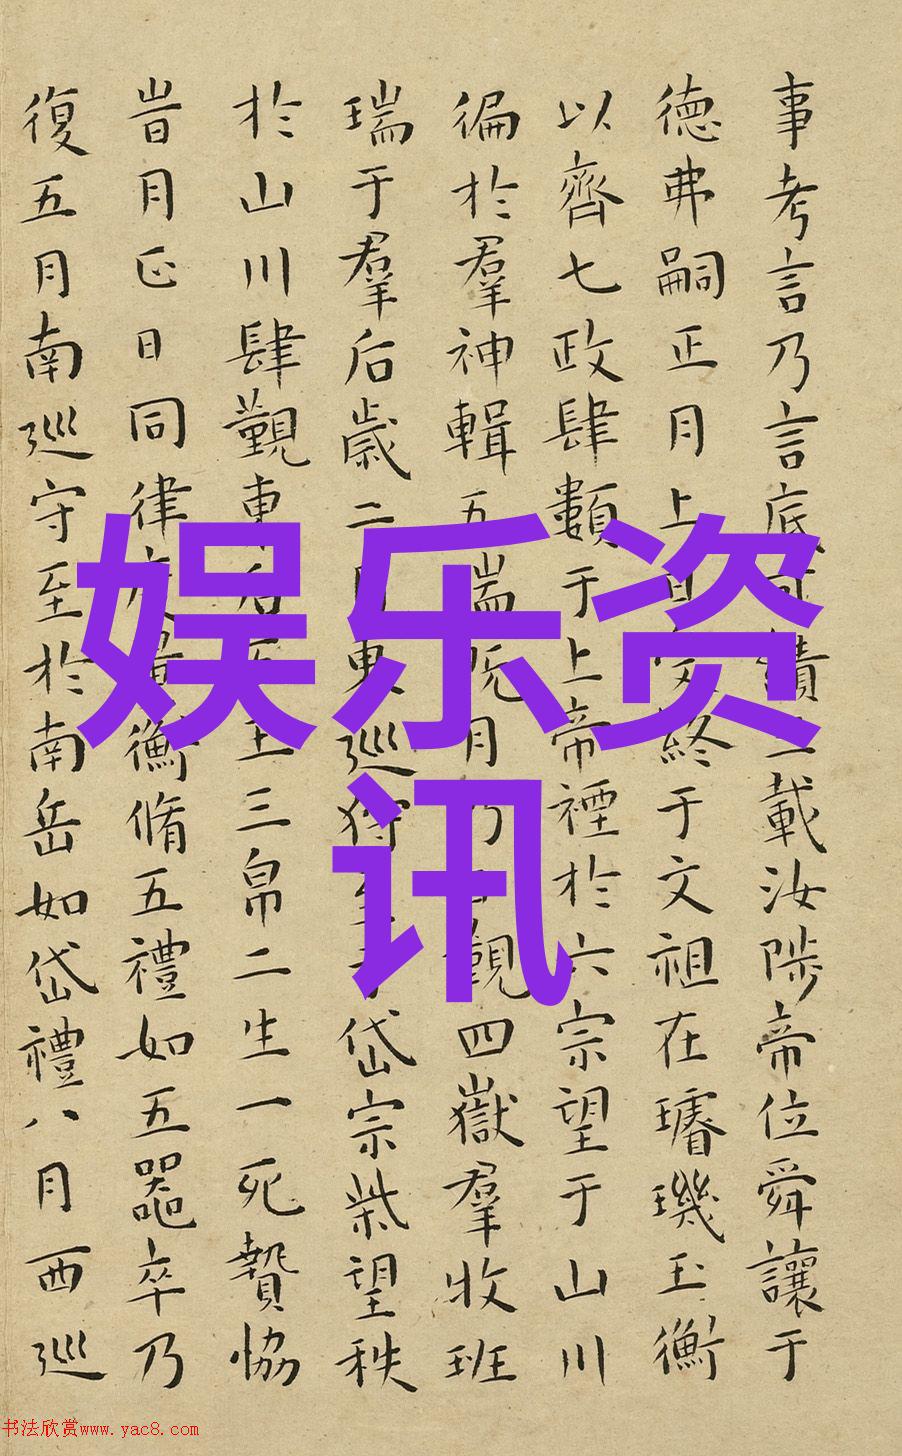 事考言乃言底可績三載汝陟帝位舜讓于
德弗嗣正月上日受終于文祖在璿璣玉衡
以齊七政肆類于上帝禋於六宗望于山川
徧於羣神輯五瑞既月乃日覲四嶽羣牧班
瑞于羣后歲二月東巡狩至于岱宗柴望秩
於山川肆覲東后五玉三帛二生一死贄協
旹月正日同律度量衡脩五禮如五器卒乃
復五月南巡守至於南岳如岱禮八月西巡
娱乐资
讯
书法欣赏www.yac8.com